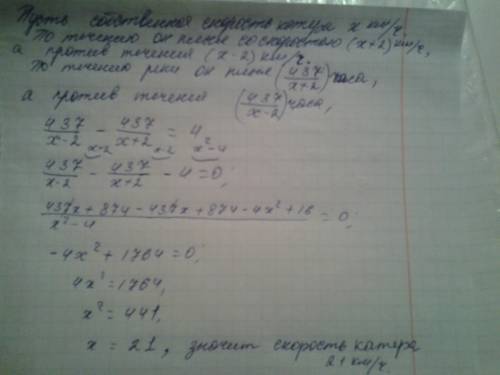 Пусть собственная скорость катера x км/ч,
По течению он плыл со скоростью (x+2) км/ч,
а против течения (x-2) км/ч.
По течению реки он плыл (437/(x+2)) часа,
а против течения (437/(x-2)) часа,
437/(x-2) - 437/(x+2) = 4
x+2 x²-4
437/(x-2) - 437/(x+2) - 4 = 0;
(437x + 874 - 437x + 874 - 4x² + 16)/(x²-4) = 0;
-4x² + 1764 = 0;
4x² = 1764,
x² = 441,
x = 21, значит скорость катера
21 км/ч.